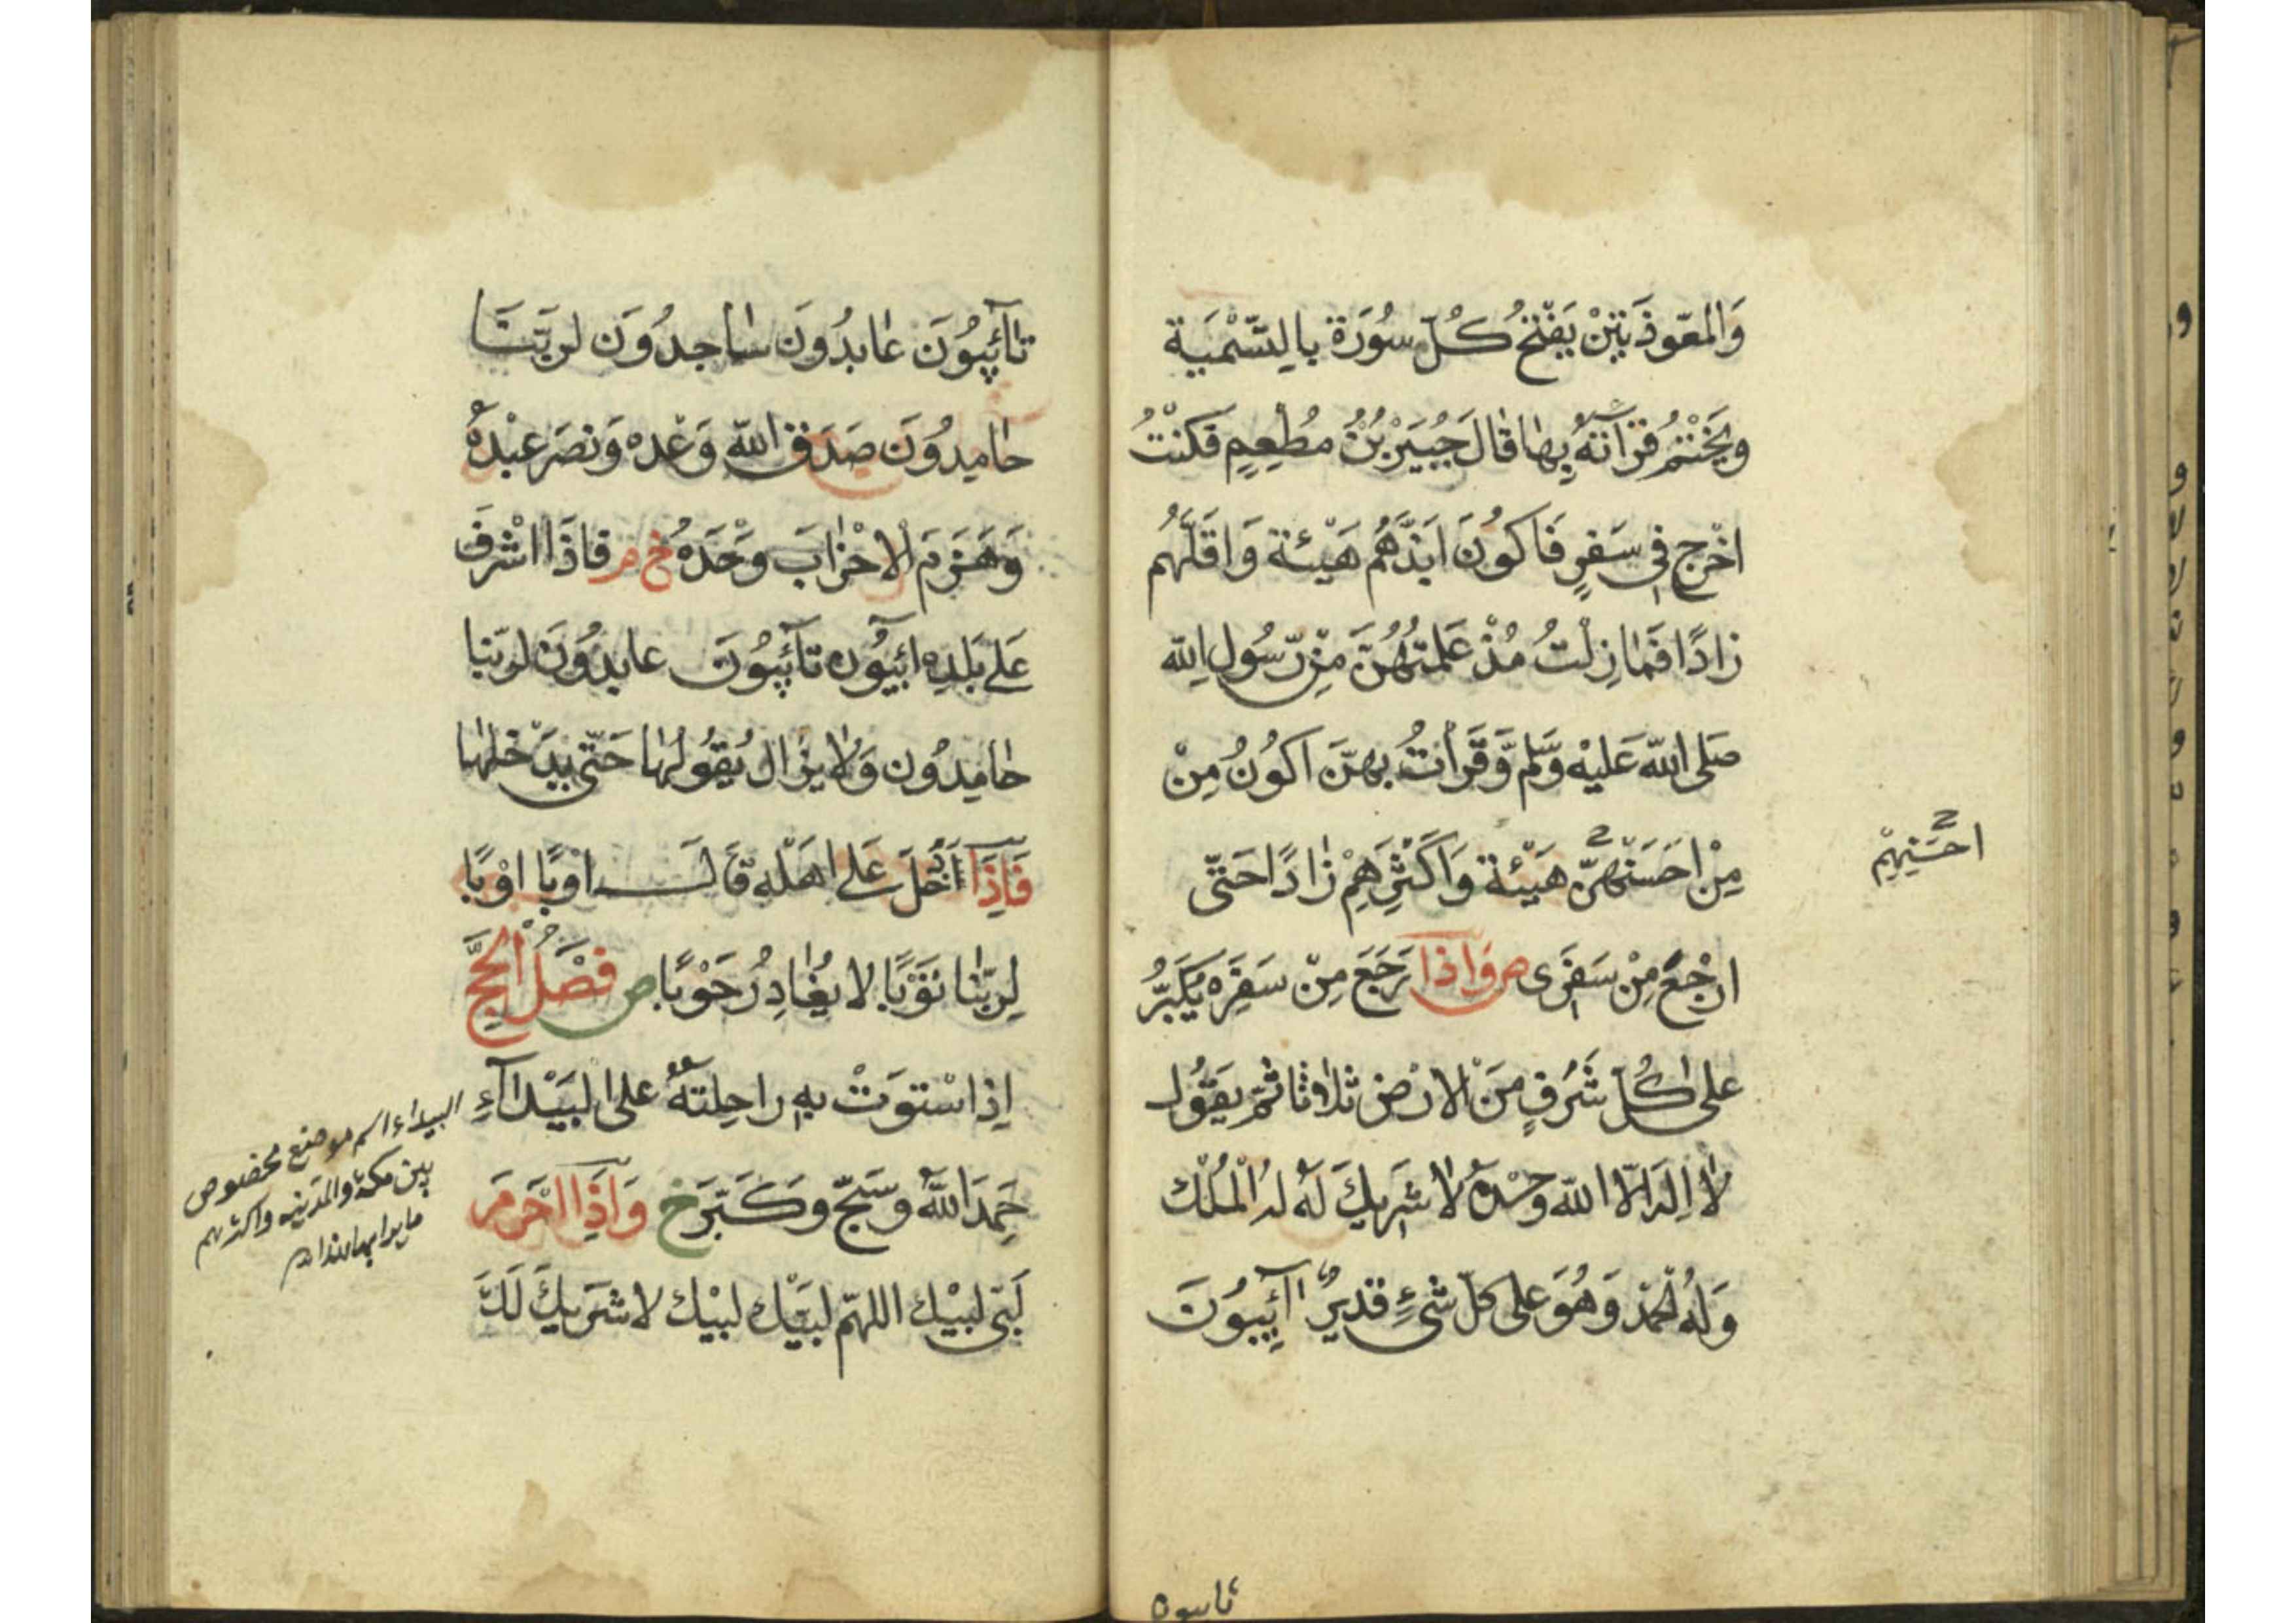 وَالمعَوّذَتَيْنْ يَفْتَحُ كُلّ سُورَة بِالتّسْمِيَة
وَيَخْتْمُ قرَآئتهُ بِهَا قَالَ جُبَيْرْ بْنُ مُطْعِمٍ فَكنْتُ
اخْرج فِي سَفرٍ فَاكوُنَ ابَذَّهُمْ هَيْئة وَاقَلَّهُم
زادًا فَمَا زِلْتُ مُذْ عَلمتُهُنَّ مِنْ رّسُول اللّه
صَلى اللّه عَليْه وَسَّلم وَقَرأتُ بهنّ اكوُنُ مِنْ
مِنْ احَسَنْهنّ هَيْئة وَاكَثرِهِمْ زادًا حَتّى
احسَنِهِمْ
ارْجعَ مِنْ سَفَرى ص وَاذا رَجَعَ مِنْ سَفرَه يُكَبّرُ
على كُلّ شَرَفٍ مِنَ الارْض ثلاثا ثمّ يقَوُل
لا اِلهَ الّا اللّه وَحْدهُ لا شَريكَ لَهُ لهُ المُلْك
وَلهُ الحمْد وَهُوَ على كلّ شئٍ قديرٌ آئِبوُنَ
تايبون
تآئِبوُنَ عَابدُونَ سَاجدُونَ لربّنَا
حَامِدُونَ صَدَق اللّه وَعْده وَنصَر عبْدهُ
وَهَزمَ الاحْزابَ وَحْدَهُ خ م فاذَا اشْرفَ
عَلى بَلدِه ائبوُن تآئِبوُنَ عابدُونَ لربّنا
حَامِدُون وَلا يزال يُقوُلهَا حَتّى يدَخلهَا
فَاِذَا آدَخَلَ عَلى اهَلْه قَالَ اوْبًا اوْبًا
لِربّنا تَوْبًا لا يغُادِرُ حَوْبًا ص فَضْلُ الحجَّ
اِذا اسْتوَتْ بهِ راحِلتهُ على البَيْدآءِ
البيداء اسم موضع مخصوص
بين مكة والمدينه واكثرهم
حَمِدَ اللّهَ وَسَبّحَ وكَبّرَ خ وَاذَا احَرمَ
لَبّى لبيْك اللهمّ لبيّك لبيْك لا شَريكَ لَكَ